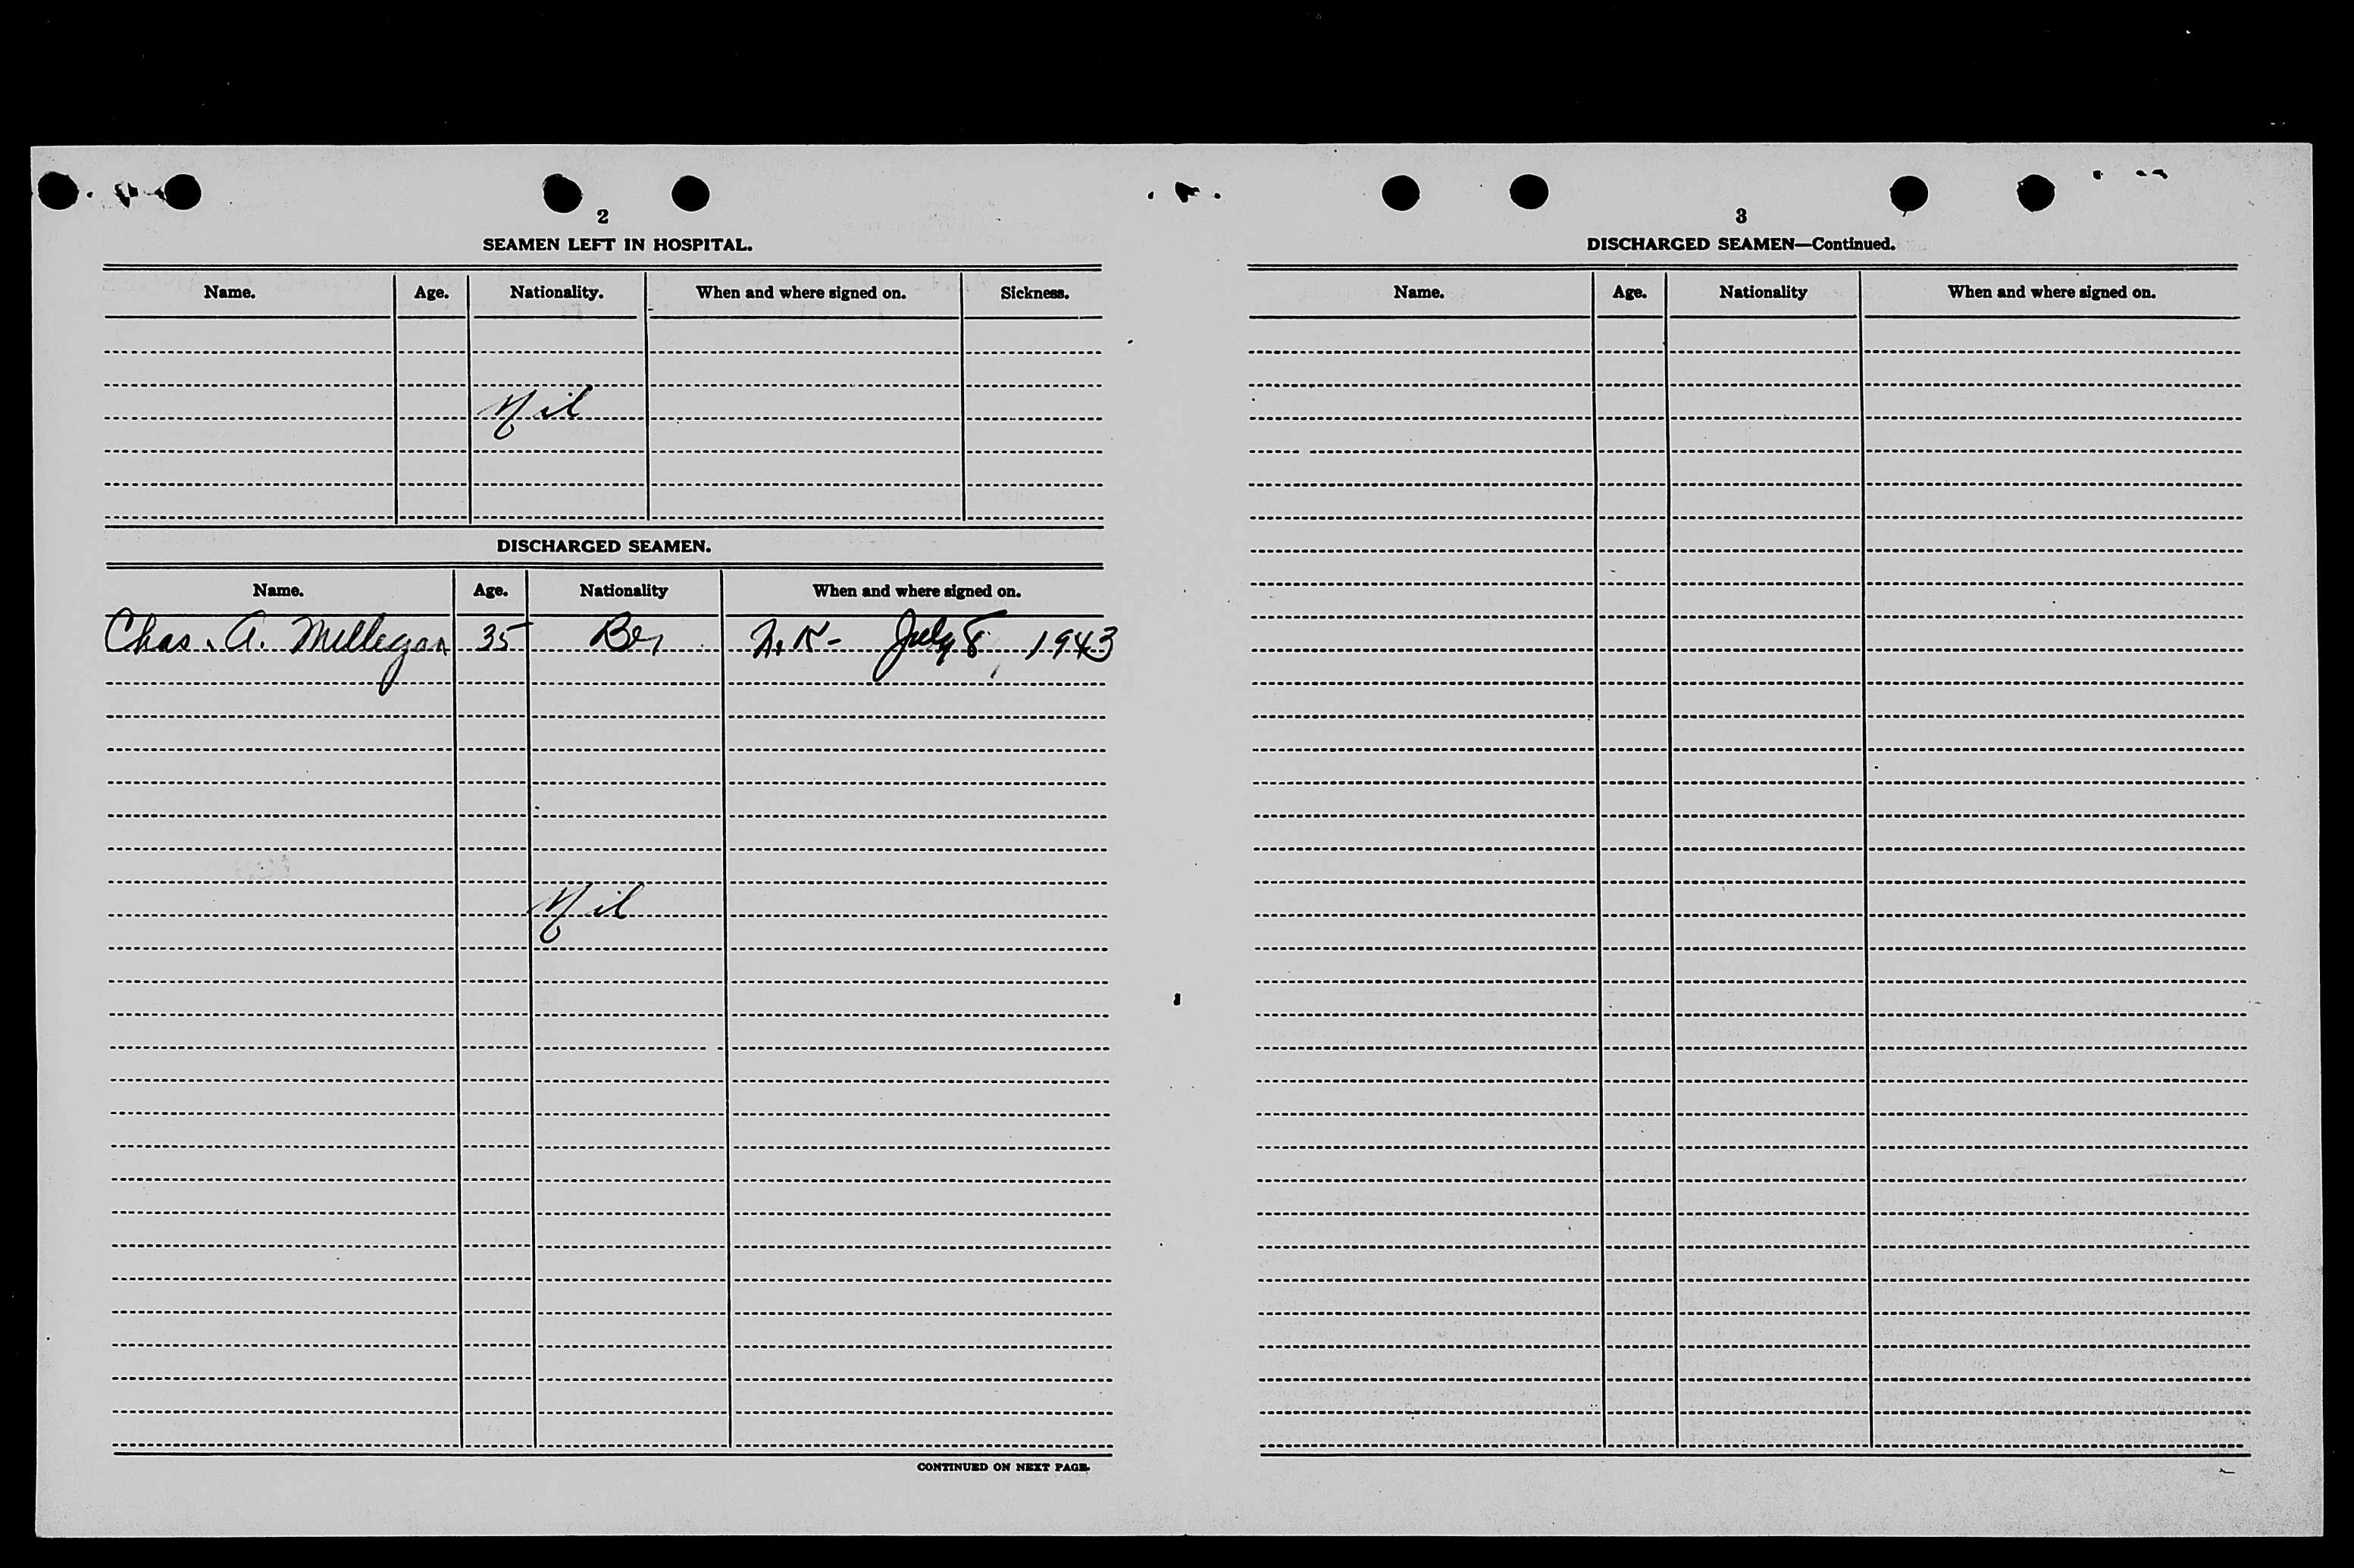 2
SEAMEN LEFT IN HOSPITAL.
Name. Age. Nationality. When and where signed on. Sickness.
Nil
DISCHARGED SEAMEN.
Name. Age. Nationality When and where signed on.
Chas. A. Millegan 35 July 8, 1943
Nil
CONTINUED ON NEXT PAGE.
3
DISCHARGED SEAMEN—Continued.
Name. Age. Nationality When and where signed on.